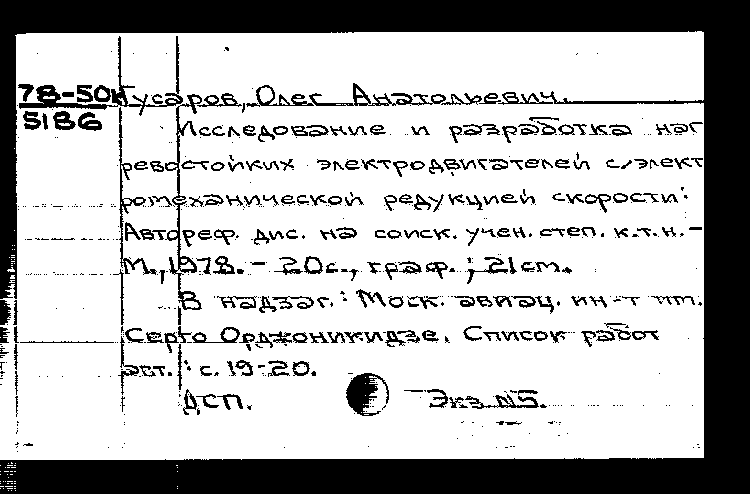 78-50к Гусаров, Олег Анатольевич.
5186
Исследование и разработка наг
ревостойких электродвигателей с элект
ромеханической редукцией скорости:
Автореф. дис. на соиск. учен. степ. к.т.н.-
М., 1978. - 20с., граф.; 21см.
В надзаг.: Моск. авиац. ин-т им.
Серго Орджоникидзе. Список работ
авт.: с. 19-20.
ДСП. Экз. №5.